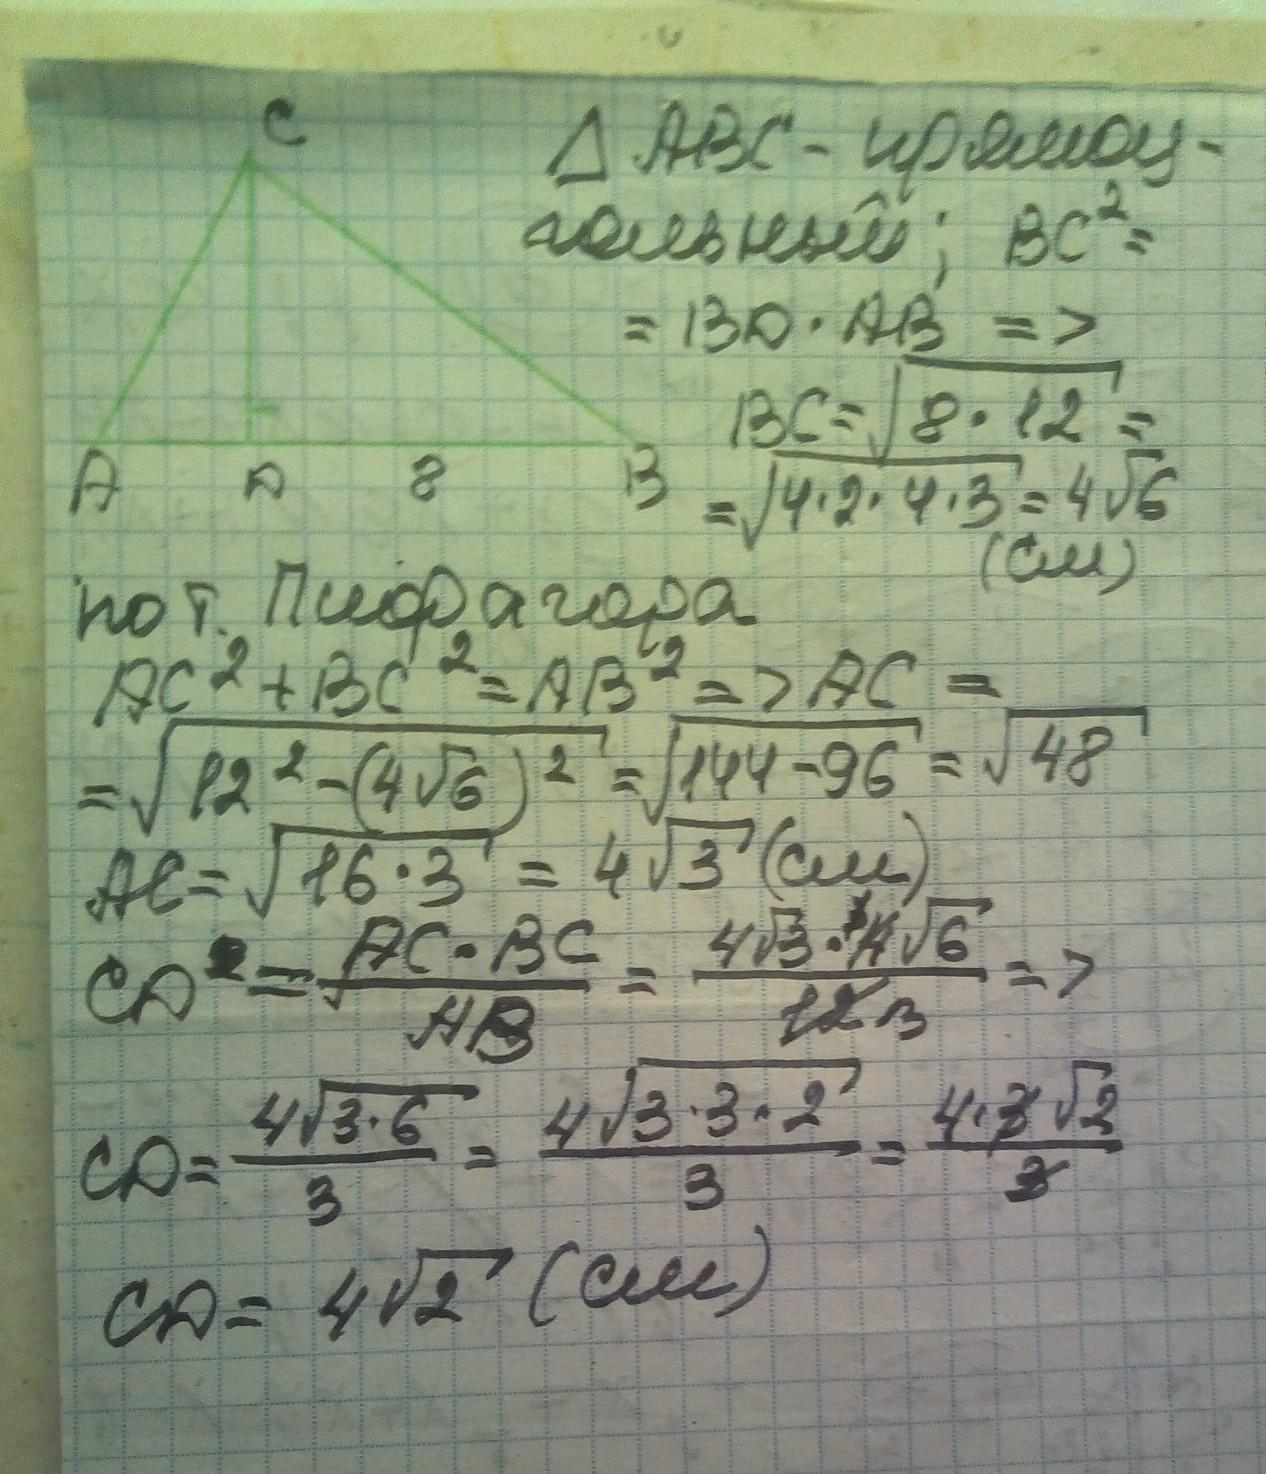 C
A D 8 B
△ ABC - прямоу-
гольный; BC² =
= BD · AB =>
BC = √8·12 =
= √4·2·4·3 = 4√6
(см)
по т. Пифагора
AC² + BC² = AB² => AC =
= √12² - (4√6)² = √144-96 = √48
AC = √16·3 = 4√3 (см)
CD = AC·BC / AB = 4√3·4√6 / 12 3 =>
CD = 4√3·6 / 3 = 4√3·3·2 / 3 = 4·3√2 / 3
CD = 4√2 (см)